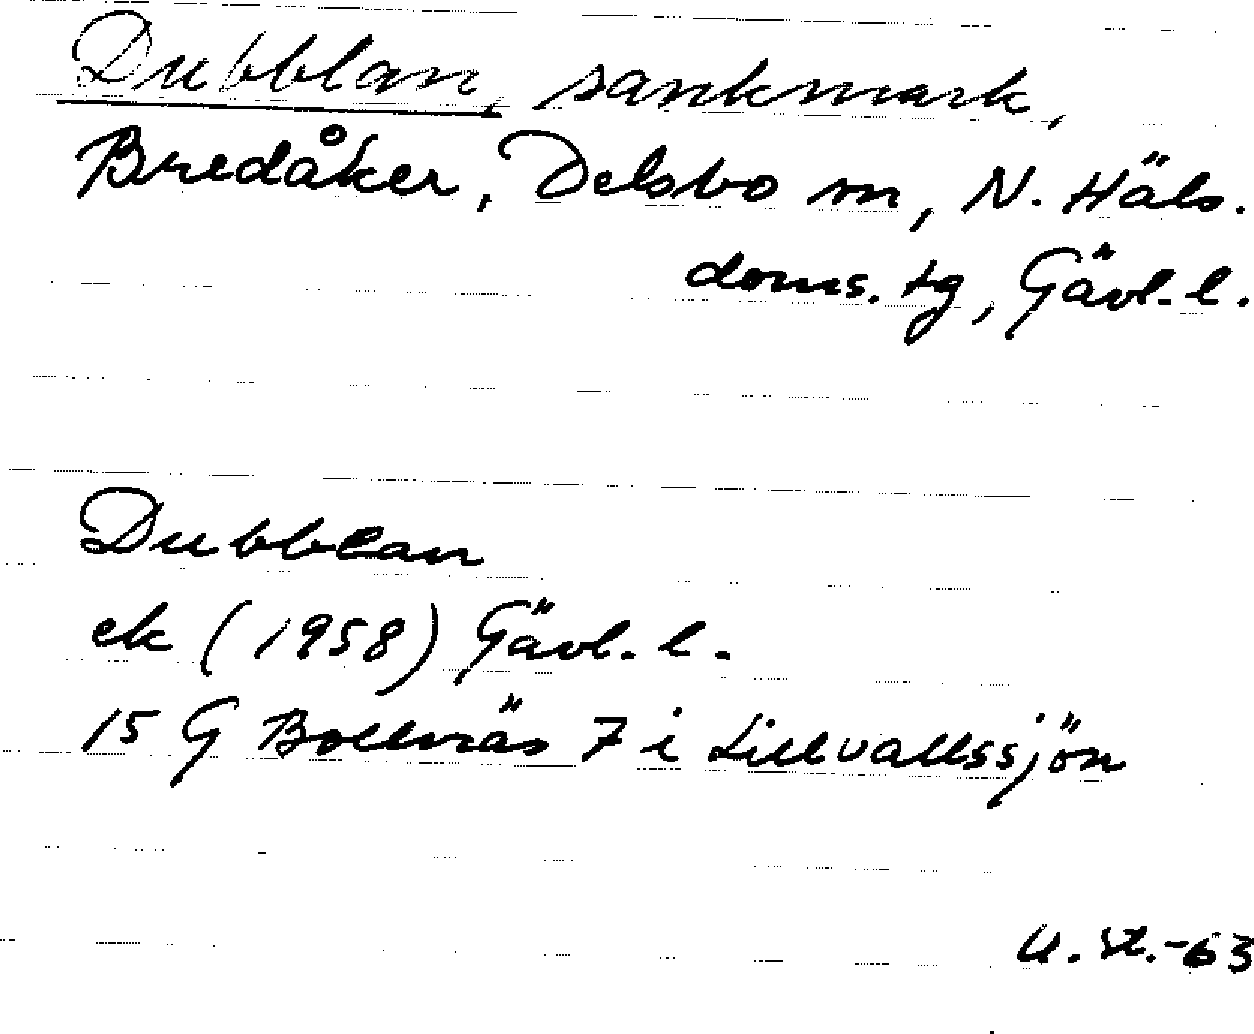 Dubblan, sankmark,
Bredåker, Delsbo sn, N. Häls.
doms. tg, Gävl. l.
Dubblan
ek (1958) Gävl. l.
15 G Bollnäs 7 i Lillvallssjön
U. St.-63